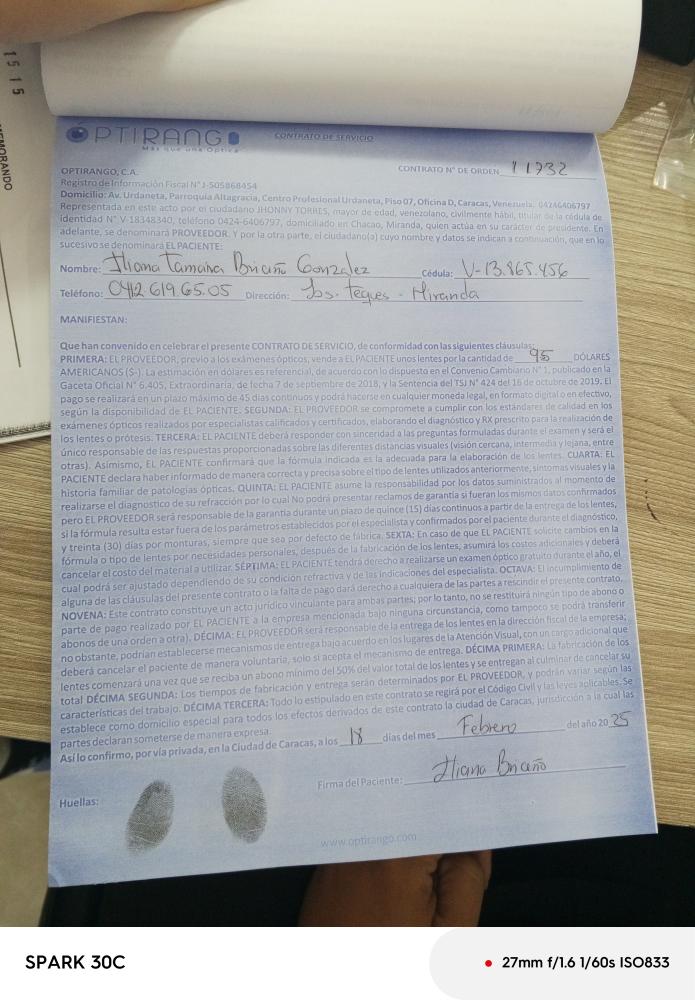 1515
MEMORANDO
ÓPTIRANGO
Más que una Óptica
CONTRATO DE SERVICIO
CONTRATO N° DE ORDEN 11732
OPTIRANGO, C.A.
Registro de Información Fiscal N° J-505868454
Domicilio: Av. Urdaneta, Parroquia Altagracia, Centro Profesional Urdaneta, Piso 07, Oficina D, Caracas, Venezuela. 04246406797
Representada en este acto por el ciudadano JHONNY TORRES, mayor de edad, venezolano, civilmente hábil, titular de la cédula de
identidad N° V-18348340, teléfono 0424-6406797, domiciliado en Chacao, Miranda, quien actúa en su carácter de presidente. En
adelante, se denominará PROVEEDOR. Y por la otra parte, el ciudadano(a) cuyo nombre y datos se indican a continuación, que en lo
sucesivo se denominará EL PACIENTE:
Nombre: Iliana Tamaira Briceño Gonzalez Cédula: V-13.865.456
Teléfono: 0412 619.65.05 Dirección: Los Teques - Miranda
MANIFIESTAN:
Que han convenido en celebrar el presente CONTRATO DE SERVICIO, de conformidad con las siguientes cláusulas:
PRIMERA: EL PROVEEDOR, previo a los exámenes ópticos, vende a EL PACIENTE unos lentes por la cantidad de 95 DÓLARES
AMERICANOS ($-). La estimación en dólares es referencial, de acuerdo con lo dispuesto en el Convenio Cambiario N° 1, publicado en la
Gaceta Oficial N° 6.405, Extraordinaria, de fecha 7 de septiembre de 2018, y la Sentencia del TSJ N° 424 del 16 de octubre de 2019. El
pago se realizará en un plazo máximo de 45 días continuos y podrá hacerse en cualquier moneda legal, en formato digital o en efectivo,
según la disponibilidad de EL PACIENTE. SEGUNDA: EL PROVEEDOR se compromete a cumplir con los estándares de calidad en los
exámenes ópticos realizados por especialistas calificados y certificados, elaborando el diagnóstico y RX prescrito para la realización de
los lentes o prótesis. TERCERA: EL PACIENTE deberá responder con sinceridad a las preguntas formuladas durante el examen y será el
único responsable de las respuestas proporcionadas sobre las diferentes distancias visuales (visión cercana, intermedia y lejana, entre
otras). Asimismo, EL PACIENTE confirmará que la fórmula indicada es la adecuada para la elaboración de los lentes. CUARTA: EL
PACIENTE declara haber informado de manera correcta y precisa sobre el tipo de lentes utilizados anteriormente, síntomas visuales y la
historia familiar de patologías ópticas. QUINTA: EL PACIENTE asume la responsabilidad por los datos suministrados al momento de
realizarse el diagnostico de su refracción por lo cual No podrá presentar reclamos de garantía si fueran los mismos datos confirmados
pero EL PROVEEDOR será responsable de la garantía durante un plazo de quince (15) días continuos a partir de la entrega de los lentes,
si la fórmula resulta estar fuera de los parámetros establecidos por el especialista y confirmados por el paciente durante el diagnóstico,
y treinta (30) días por monturas, siempre que sea por defecto de fábrica. SEXTA: En caso de que EL PACIENTE solicite cambios en la
fórmula o tipo de lentes por necesidades personales, después de la fabricación de los lentes, asumirá los costos adicionales y deberá
cancelar el costo del material a utilizar. SÉPTIMA: EL PACIENTE tendrá derecho a realizarse un examen óptico gratuito durante el año, el
cual podrá ser ajustado dependiendo de su condición refractiva y de las indicaciones del especialista. OCTAVA: El incumplimiento de
alguna de las cláusulas del presente contrato o la falta de pago dará derecho a cualquiera de las partes a rescindir el presente contrato.
NOVENA: Este contrato constituye un acto jurídico vinculante para ambas partes; por lo tanto, no se restituirá ningún tipo de abono o
parte de pago realizado por EL PACIENTE a la empresa mencionada bajo ninguna circunstancia, como tampoco se podrá transferir
abonos de una orden a otra). DÉCIMA: EL PROVEEDOR será responsable de la entrega de los lentes en la dirección fiscal de la empresa;
no obstante, podrían establecerse mecanismos de entrega bajo acuerdo en los lugares de la Atención Visual, con un cargo adicional que
deberá cancelar el paciente de manera voluntaria, solo si acepta el mecanismo de entrega. DÉCIMA PRIMERA: La fabricación de los
lentes comenzará una vez que se reciba un abono mínimo del 50% del valor total de los lentes y se entregan al culminar de cancelar su
total DÉCIMA SEGUNDA: Los tiempos de fabricación y entrega serán determinados por EL PROVEEDOR, y podrán variar según las
características del trabajo. DÉCIMA TERCERA: Todo lo estipulado en este contrato se regirá por el Código Civil y las leyes aplicables. Se
establece como domicilio especial para todos los efectos derivados de este contrato la ciudad de Caracas, jurisdicción a la cual las
partes declaran someterse de manera expresa.
Así lo confirmo, por vía privada, en la Ciudad de Caracas, a los 18 días del mes Febrero del año 2025
Firma del Paciente: Iliana Briceño
Huellas:
www.optirango.com
SPARK 30C
27mm f/1.6 1/60s ISO833